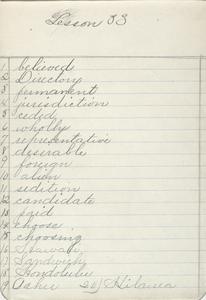 Lesson 33
1 believed
2 Directory
3 permanent
4 jurisdiction
5 ceded
6 wholly
7 representative
8 desirable
9 foreign
10 alien
11 sedition
12 candidate
13 said
14 choose
15 choosing
16 Hawaii
17 Sandwich
18 Honolulu
19 Asher 20)